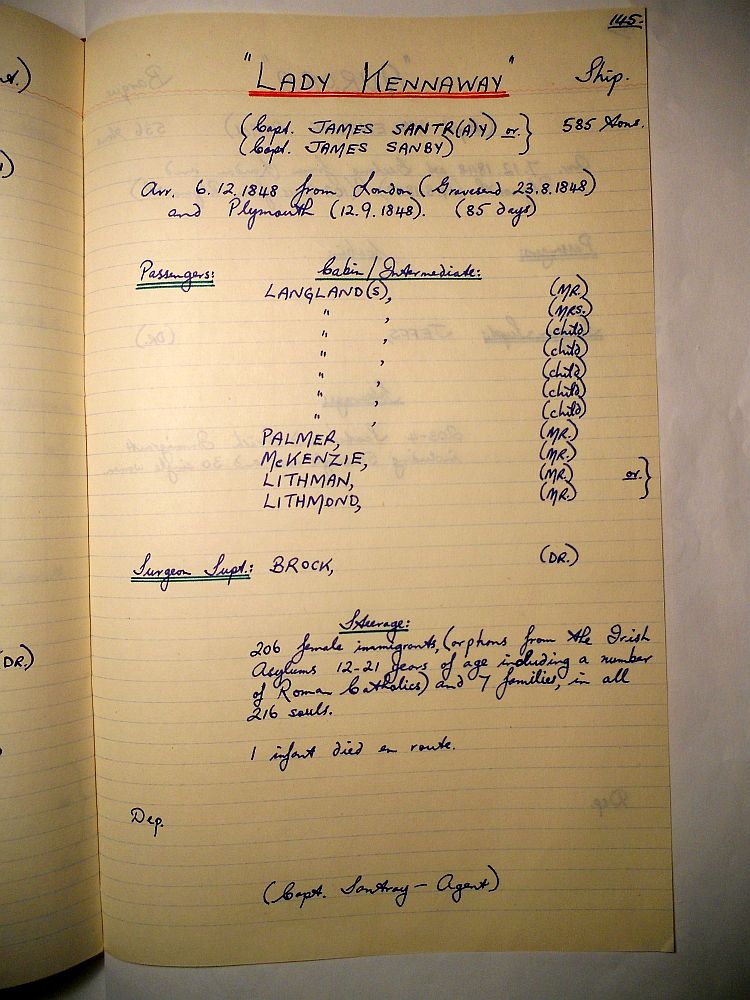 145.
"LADY KENNAWAY" Ship.
{Capt. JAMES SANTR(A)Y) or.} 585 tons.
(Capt. JAMES SANBY)
Arr. 6.12.1848 from London (Gravesend 23.8.1848)
and Plymouth (12.9.1848). (85 days)
Passengers: Cabin/Intermediate:
LANGLAND(S), (MR.)
" , (MRS.)
" , (child)
" , (child)
" , (child)
" , (child)
" , (child)
PALMER, (MR.)
McKENZIE, (MR.)
LITHMAN, (MR.) or.}
LITHMOND, (MR.)
Surgeon Supt.: BROCK, (DR.)
Steerage:
206 female immigrants, (orphans from the Irish
Asylums 12-21 years of age including a number
of Roman Catholics) and 7 families, in all
216 souls.
1 infant died en route.
(DR.)
Dep.
(Capt. Santray - Agent)